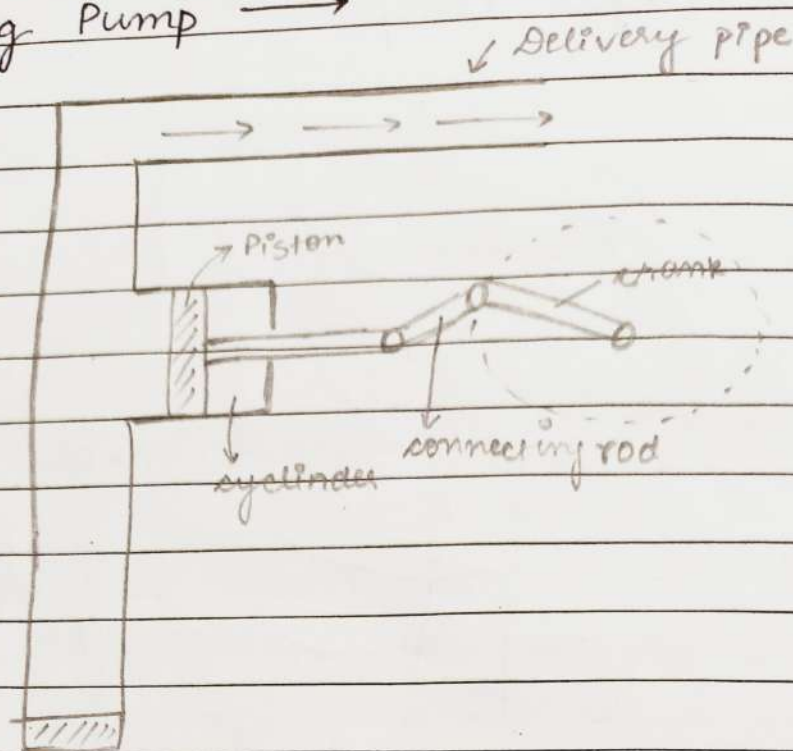 g Pump →
Delivery pipe
Piston
crank
connecting rod
cyclinder